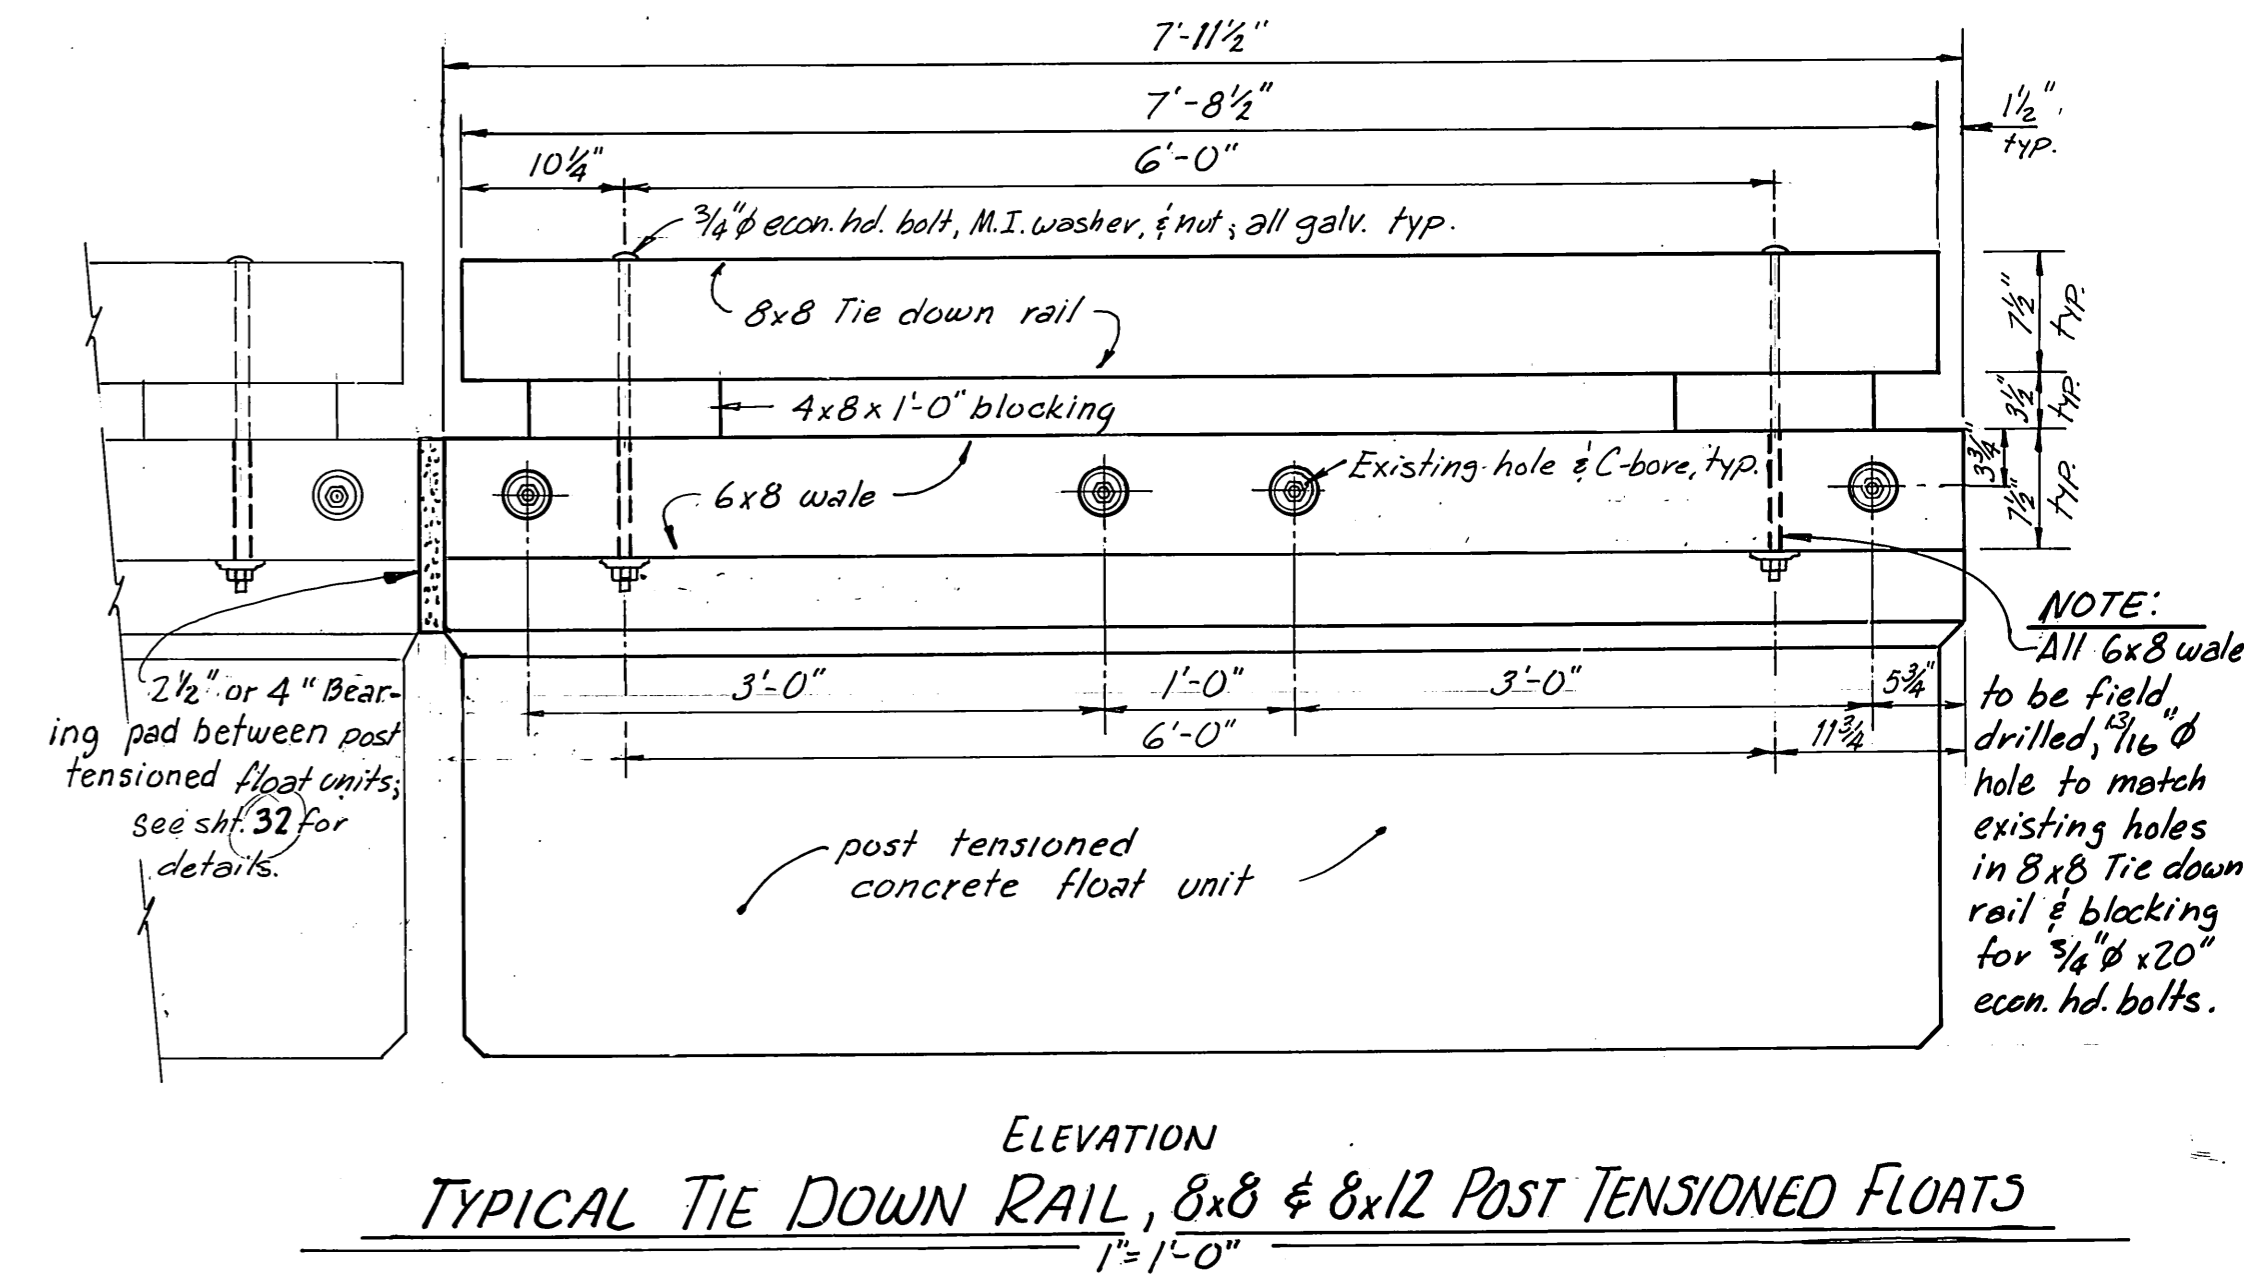 7'-11½"
7'-8½"
1½"
typ.
10¼"
6'-0"
¾"ϕ econ. hd. bolt, M.I. washer, & nut; all galv. typ.
8x8 Tie down rail
7½"
typ.
4x8 x 1'-0" blocking
3½"
typ.
3¾"
Existing hole & C-bore, typ.
6x8 wale
7½"
typ.
NOTE:
All 6x8 wale
to be field
drilled, 13/16"ϕ
hole to match
existing holes
in 8x8 Tie down
rail & blocking
for ¾"ϕ x20"
econ. hd. bolts.
3'-0"
1'-0"
3'-0"
5¾"
6'-0"
11¾
2½" or 4" Bear-
ing pad between post
tensioned float units;
see sht. 32 for
details.
post tensioned
concrete float unit
ELEVATION
TYPICAL TIE DOWN RAIL, 8x8 & 8x12 POST TENSIONED FLOATS
1"=1'-0"